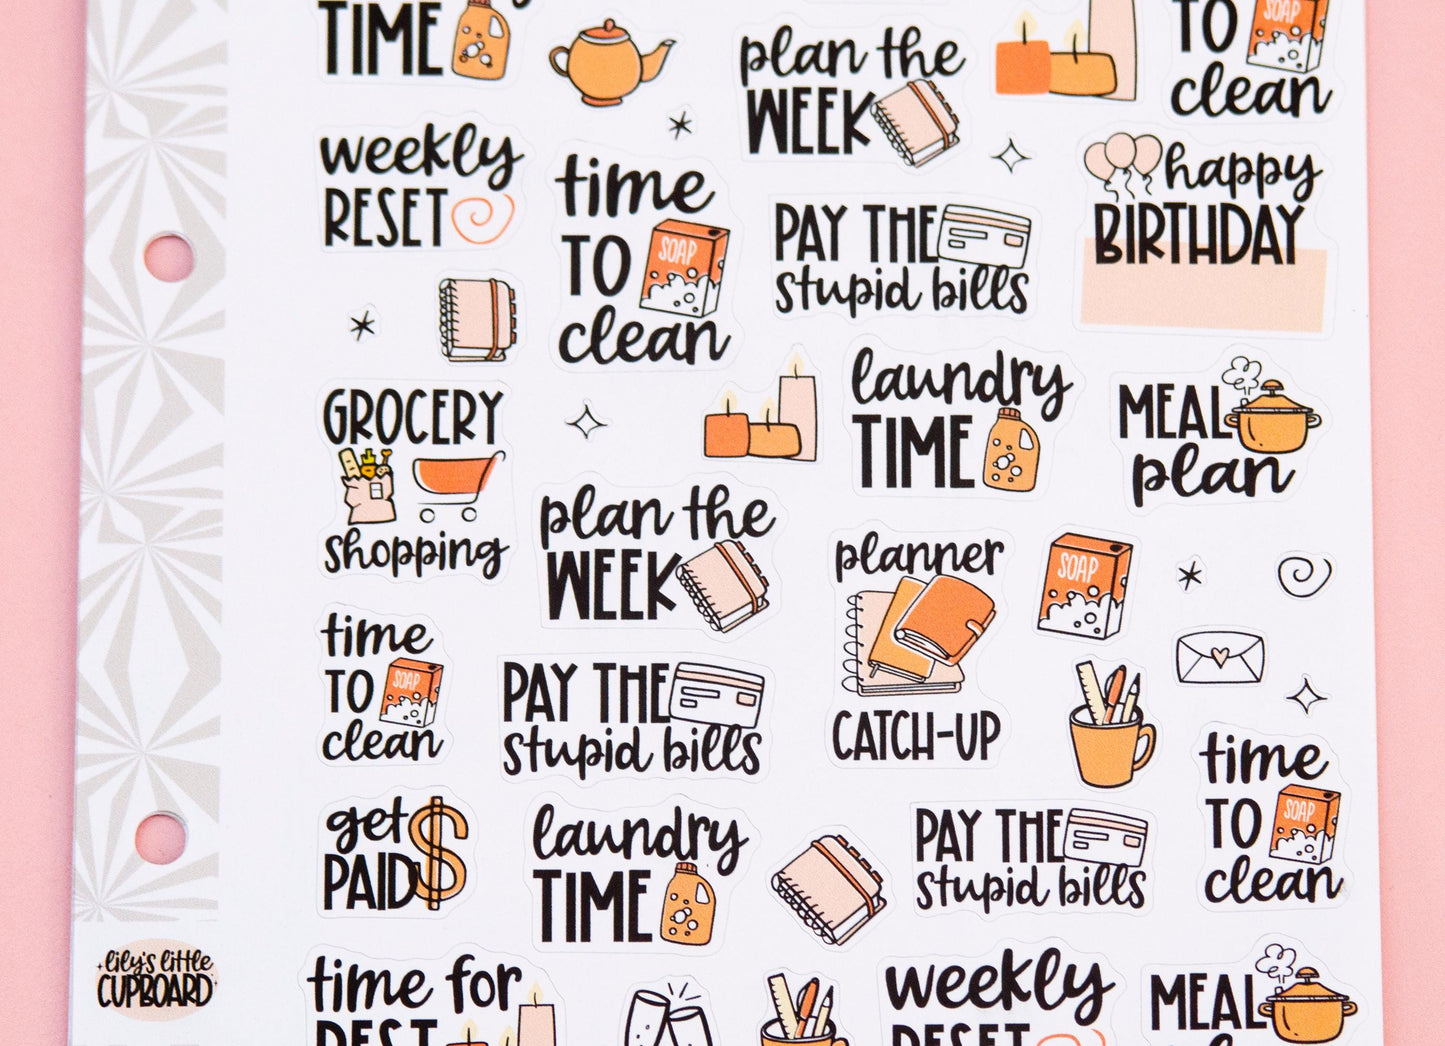 TIME
plan the
WEEK
TO
SOAP
clean
weekly
RESET
time
TO
SOAP
clean
PAY THE
stupid bills
happy
BIRTHDAY
GROCERY
shopping
laundry
TIME
MEAL
plan
plan the
WEEK
planner
CATCH-UP
SOAP
time
TO
SOAP
clean
PAY THE
stupid bills
time
TO
SOAP
clean
get
PAID
laundry
TIME
PAY THE
stupid bills
lily's little
CUPBOARD
time for
REST
weekly
RESET
MEAL